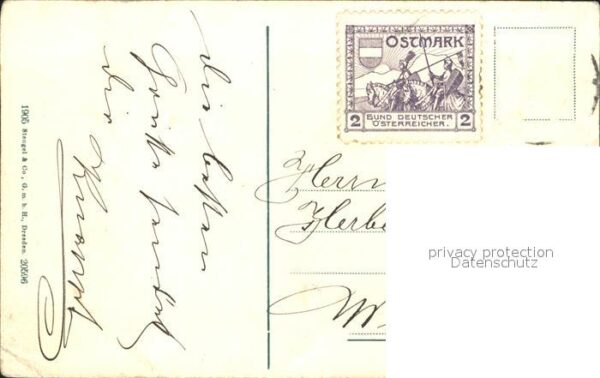 die besten
Grüße sendet
dir
1905 Stengel & Co., G. m. b. H., Dresden. 20596
OSTMARK
2 BUND DEUTSCHER 2
ÖSTERREICHER.
Herrn
Herbe
W
privacy protection
Datenschutz